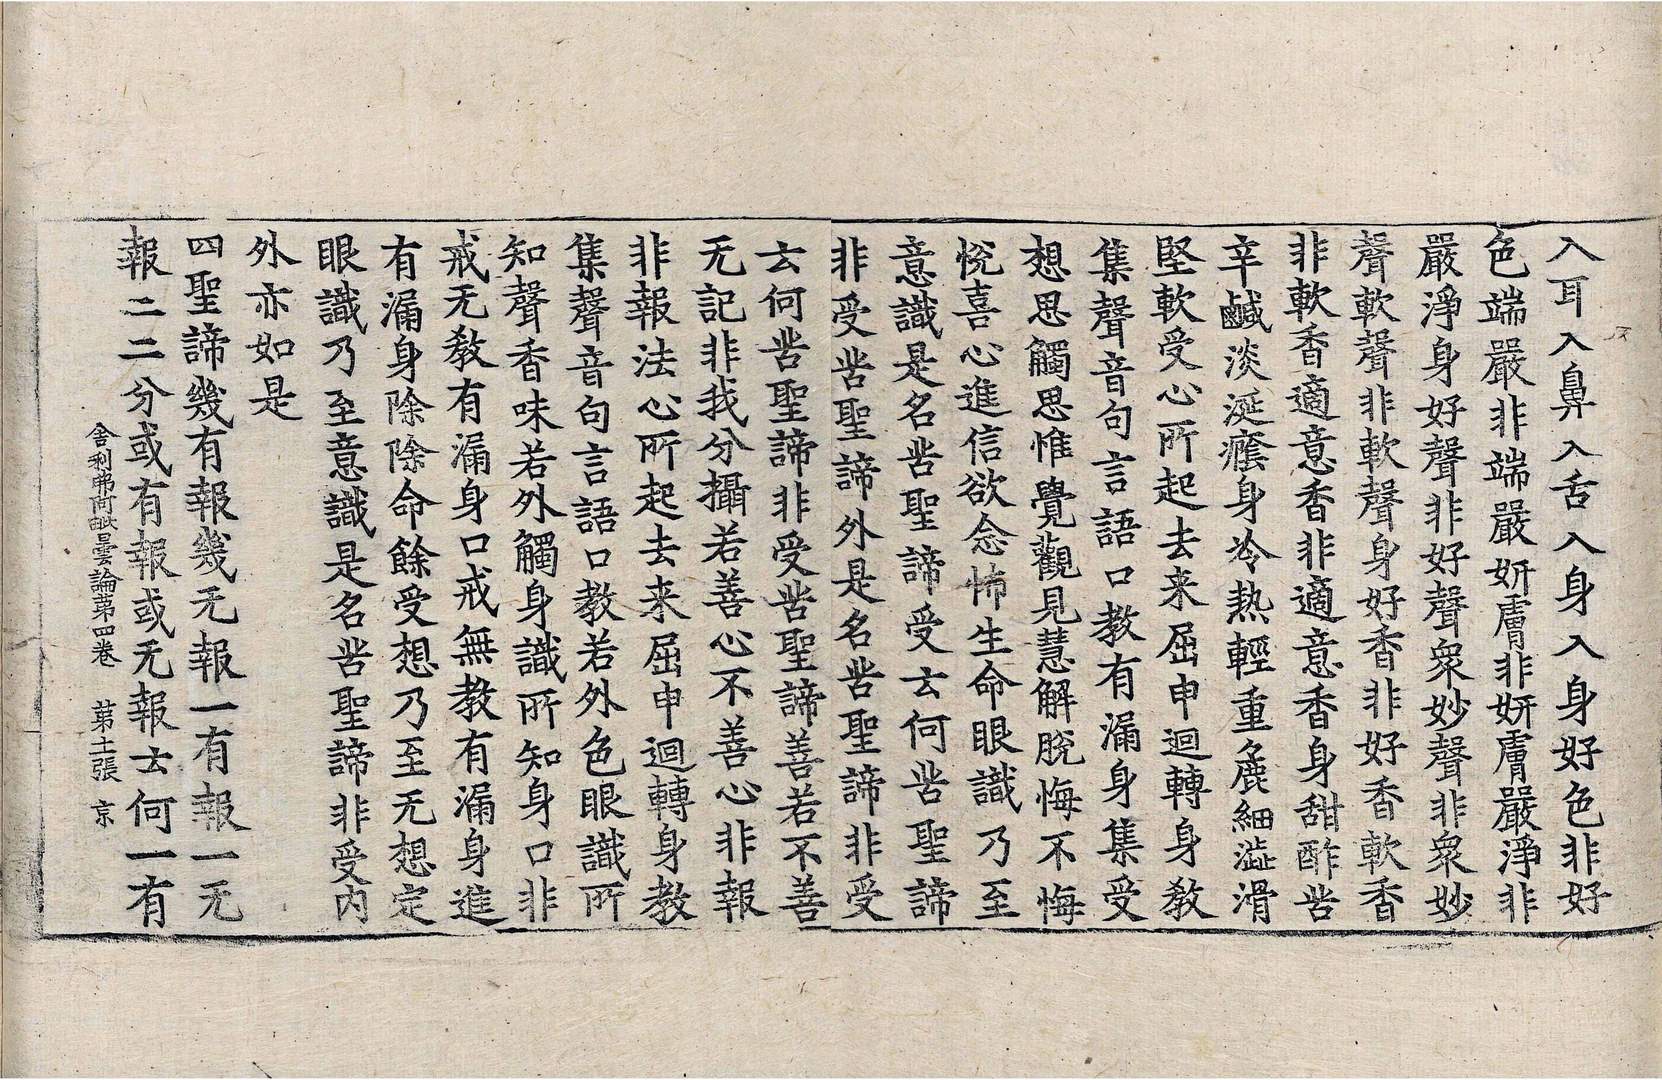 入耳入鼻入舌入身入身好色非好
色端嚴非端嚴妍膚非妍膚嚴淨非
嚴淨身好聲非好聲衆妙聲非衆妙
聲軟聲非軟聲身好香非好香軟香
非軟香適意香非適意香身甜酢苦
辛鹹淡涎癊身冷熱輕重麁細澁滑
堅軟受心所起去来屈申迴轉身教
集聲音句言語口教有漏身集受
想思觸思惟覺觀見慧解脫悔不悔
悅喜心進信欲念怖生命眼識乃至
意識是名苦聖諦受云何苦聖諦
非受苦聖諦外是名苦聖諦非受
云何苦聖諦非受苦聖諦善若不善
无記非我分攝若善心不善心非報
非報法心所起去来屈申迴轉身教
集聲音句言語口教若外色眼識所
知聲香味若外觸身識所知身口非
戒无教有漏身口戒無教有漏身進
有漏身除除命餘受想乃至无想定
眼識乃至意識是名苦聖諦非受內
外亦如是
四聖諦幾有報幾无報一有報一无
報二二分或有報或无報云何一有
舍利弗阿毗曇論苐四卷 苐十張 京